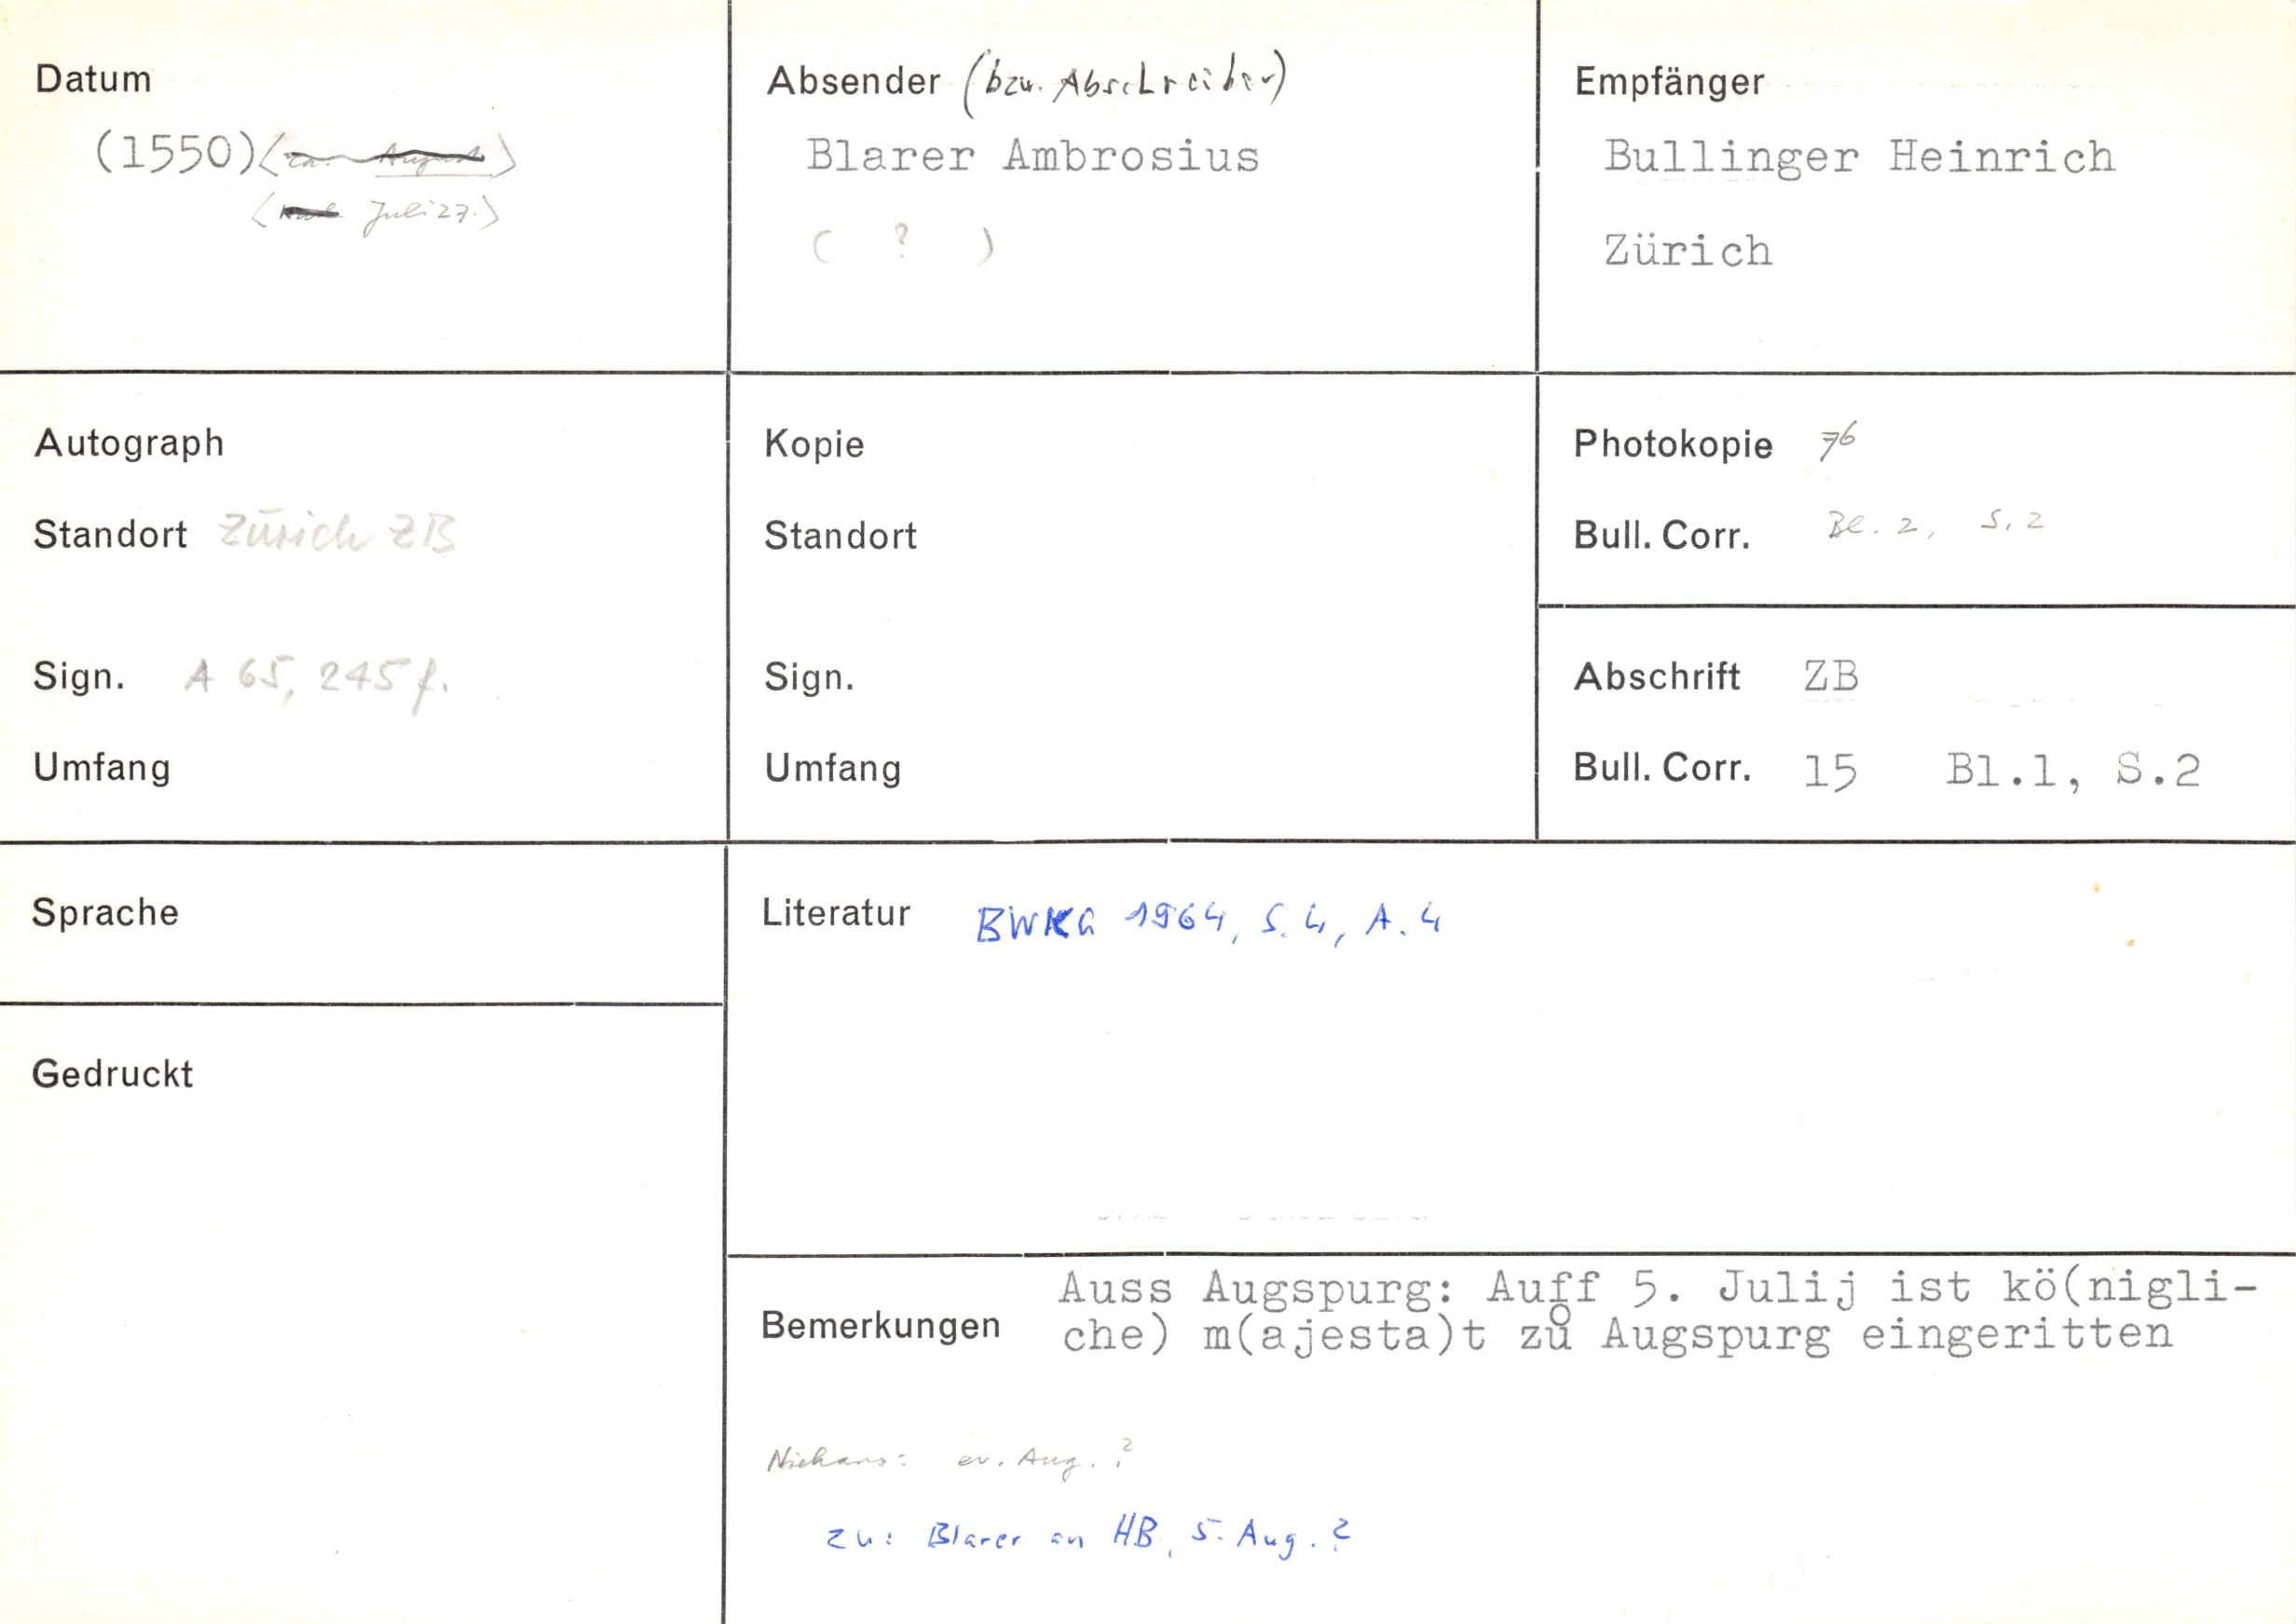 Datum
(1550) <ca. August>
< Juli 27.>
Absender (bzw. Abschreiber)
Blarer Ambrosius
( ? )
Empfänger
Bullinger Heinrich
Zürich
Autograph
Standort Zürich ZB
Sign. A 65, 245 f.
Umfang
Kopie
Standort
Sign.
Umfang
Photokopie 76
Bull. Corr. Bl. 2, S. 2
Abschrift ZB
Bull. Corr. 15 Bl.1, S.2
Sprache
Gedruckt
Literatur BWKG 1964, S. 4, A. 4
Bemerkungen
Auss Augspurg: Auff 5. Julij ist kö(nigli-
che) m(ajesta)t zů Augspurg eingeritten
Niehans: ev. Aug.?
zu: Blarer an HB, 5. Aug.?